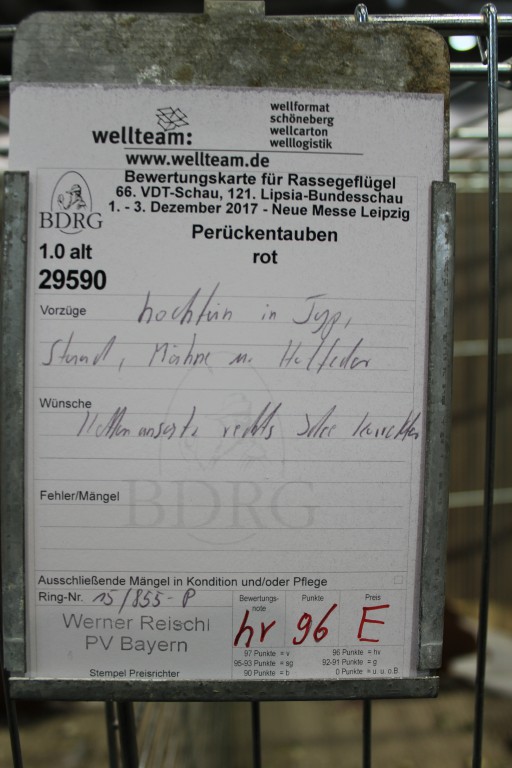 wellteam:
wellformat
schöneberg
wellcarton
welllogistik
www.wellteam.de
Bewertungskarte für Rassegeflügel
66. VDT-Schau, 121. Lipsia-Bundesschau
1. - 3. Dezember 2017 - Neue Messe Leipzig
BDRG
Perückentauben
1.0 alt
rot
29590
Vorzüge
hochfein in Typ,
Stand, Mähne
Wünsche
rechts
Fehler/Mängel
BDRG
Ausschließende Mängel in Kondition und/oder Pflege
Ring-Nr. 15/855-P
Bewertungs-
note
Punkte
Preis
hv 96 E
Werner Reischl
PV Bayern
Stempel Preisrichter
97 Punkte = v
96 Punkte = hv
95-93 Punkte = sg
92-91 Punkte = g
90 Punkte = b
0 Punkte = u. u. o.B